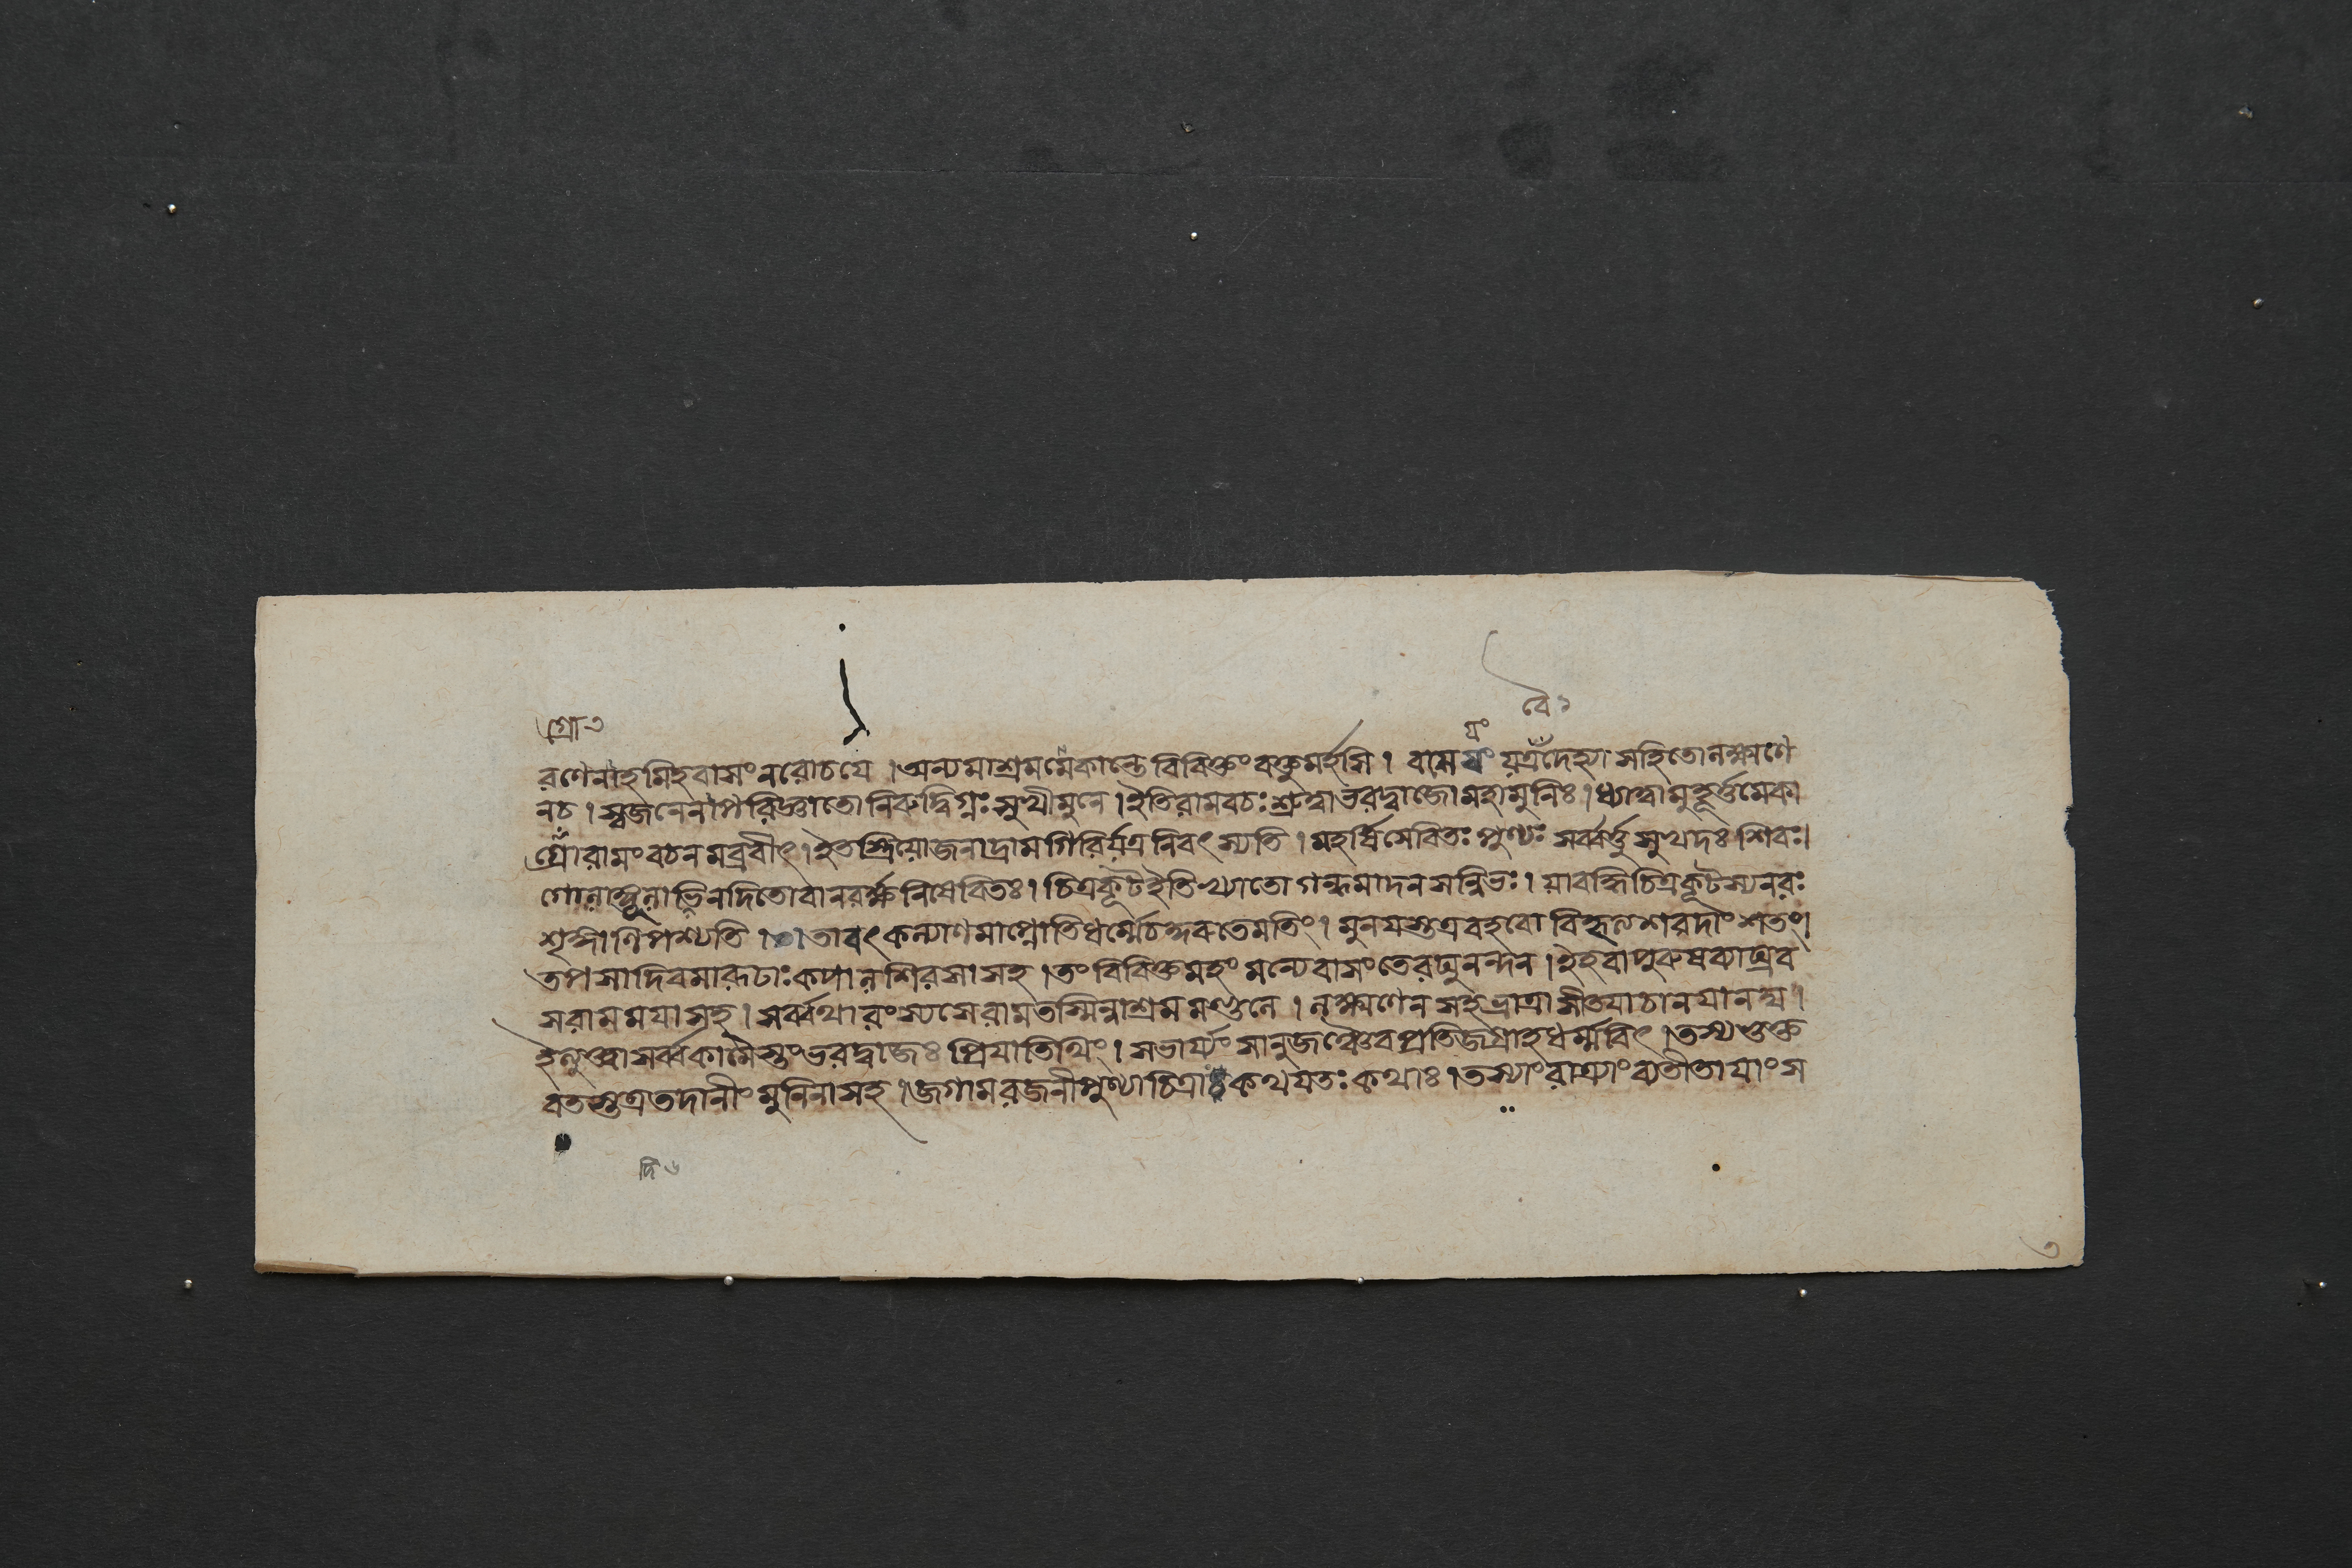 গ্রো ৩
বৈ ১
যং
রণেনাহমিহবাসংনরোচয়ে । অন্যমাশ্রমমেকান্তে বিবিক্তং বক্তুমর্হসি । বাসে যং যত্রদেহ্যা সহিতোলক্ষ্মণে
নচ । স্বজনেনাপরিজ্ঞাতো নিরুদ্বিগ্নঃ সুখীমুনে । ইতিরামবচঃ শ্রুত্বাভরদ্বাজোমহামুনিঃ । ধ্যাত্বামুহূর্ত্তমেকা
গ্রোরামং বচনমব্রবীৎ । ইতস্ত্রিযোজনাদ্রামগিরির্যত্রনিবৎস্যতি । মহর্ষিসেবিতঃ পুণ্যঃ সর্ব্বর্ত্তুসুখদঃ শিবঃ।
গোলাঙ্গূলাভিনদিতোবানরর্ক্ষনিষেবিতঃ । চিত্রকূটইতিখ্যাতো গন্ধমাদনসন্নিভঃ । যাবদ্ধিচিত্রকূটস্যনরঃ
শৃঙ্গাণিপশ্যতি । ০ । তাবৎকল্যাণমাপ্নোতিধর্ম্মেচকুরুতেমতিং । মুনযস্তত্রবহবো বিহৃত্যশরদাং শতং।
তপসাদিবমারূঢাঃ কপালশিরসা সহ । তং বিবিক্তমহং মন্যেবাসংতেরঘুনন্দন । ইহবাপুরুষব্যাঘ্রব
সরামমযাসহ । সর্ব্বথারংস্যসেরামতস্মিন্নাশ্রমমণ্ডলে । লক্ষ্মণেন সহভ্রাত্রাসীতযাচানযানঘ ।
ইত্যুক্ত্বাসর্ব্বকামৈস্তংভরদ্বাজঃ প্রিযাতিথিং । সভার্য্যংসানুজঞ্চৈবপ্রতিজগ্রাহধর্ম্মবিৎ । তস্যভুক্ত
বতস্তত্রতদানীং মুনিনাসহ । জগামরজনীপুণ্যাচিত্রাঃ কথযতঃ কথাঃ । তস্যাংরাত্র্যাং ব্যতীতাযাংস
দি ৬
৩